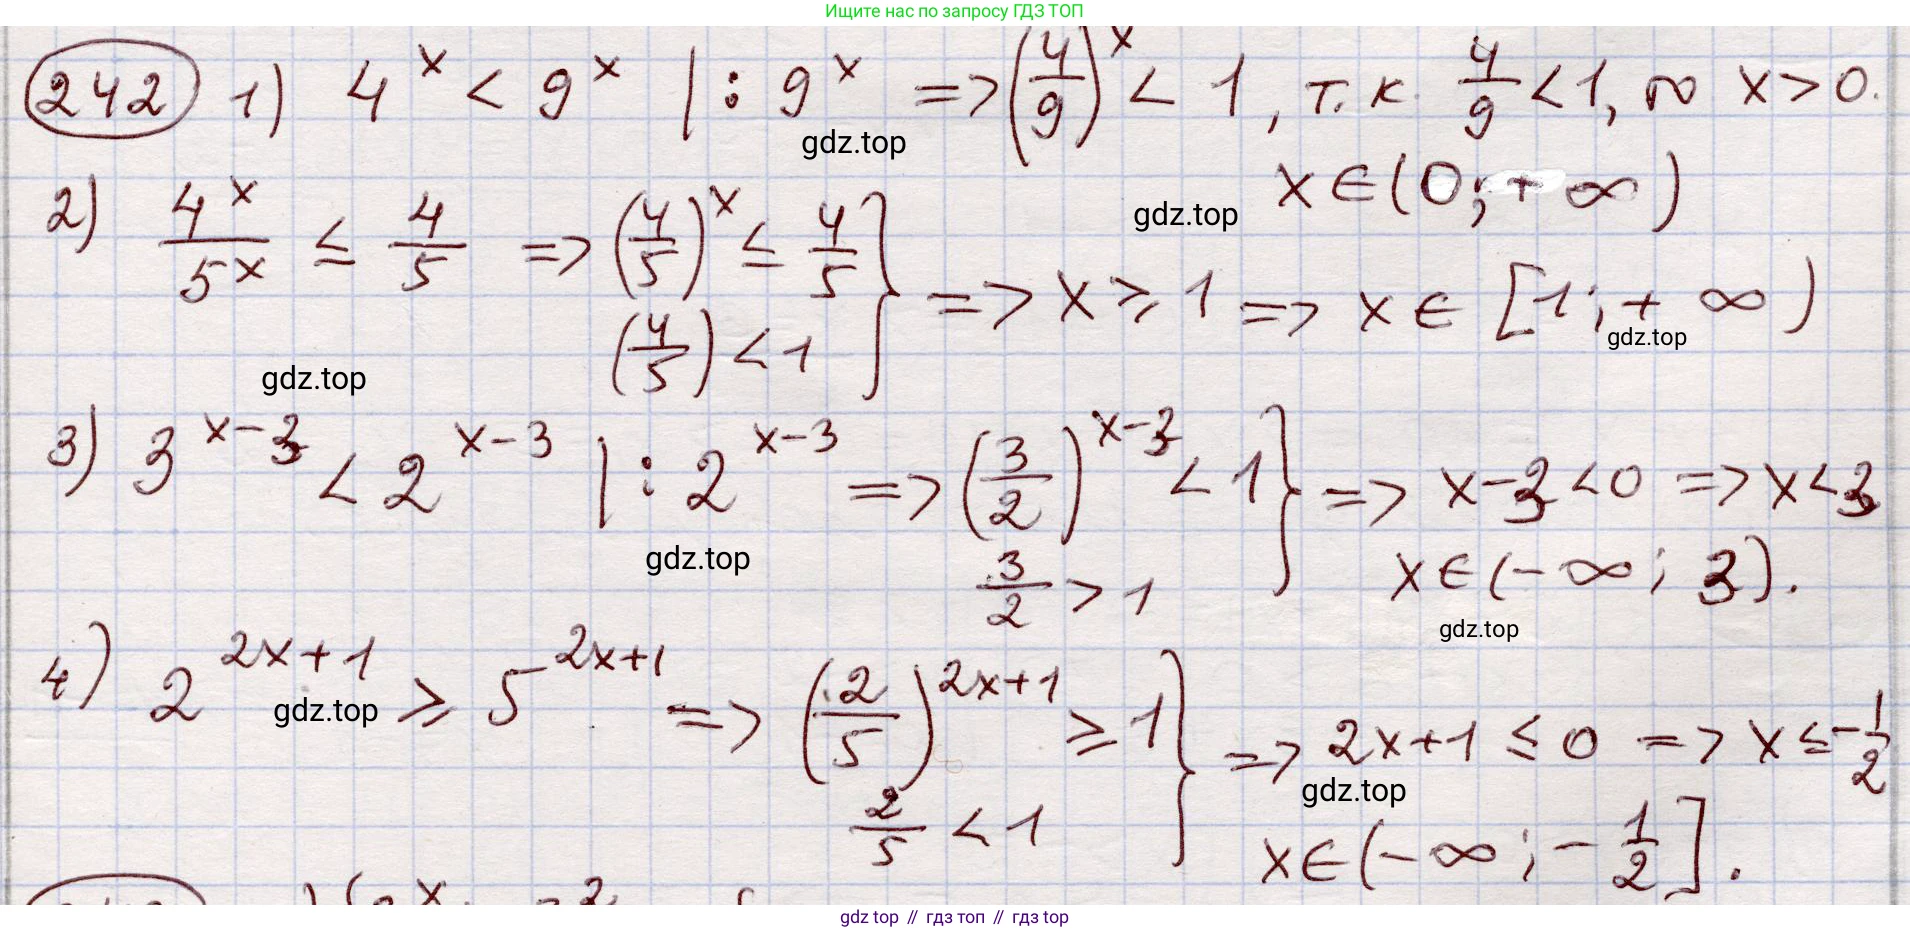 Ищите нас по запросу ГДЗ ТОП
242 1) 4^x < 9^x | : 9^x => (4/9)^x < 1, т.к. 4/9 < 1, то x > 0.
gdz.top
x ∈ (0; + ∞)
gdz.top
2) 4^x/5^x ≤ 4/5 => (4/5)^x ≤ 4/5 } => x ≥ 1 => x ∈ [1; + ∞)
(4/5) < 1
gdz.top
gdz.top
3) 3^(x-3) < 2^(x-3) | : 2^(x-3) => (3/2)^(x-3) < 1 } => x-3 < 0 => x < 3
3/2 > 1
x ∈ (-∞; 3).
gdz.top
gdz.top
4) 2^(2x+1) ≥ 5^(2x+1) => (2/5)^(2x+1) ≥ 1 } => 2x+1 ≤ 0 => x ≤ -1/2
gdz.top
2/5 < 1
gdz.top
x ∈ (-∞; -1/2].
gdz top // гдз топ // гдз top